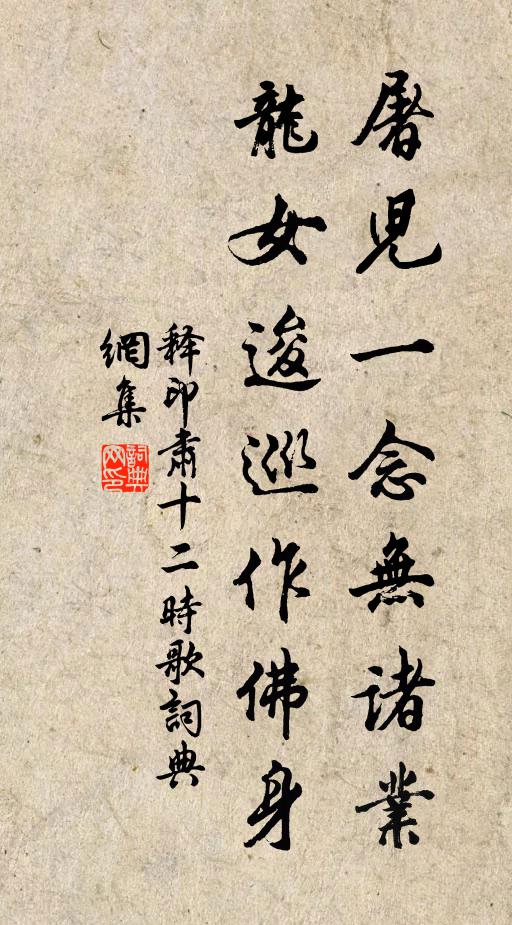 屠児一念無諸業
龍女逡巡作佛身
释印肅十二時歌詞典
網集
詞典
网印